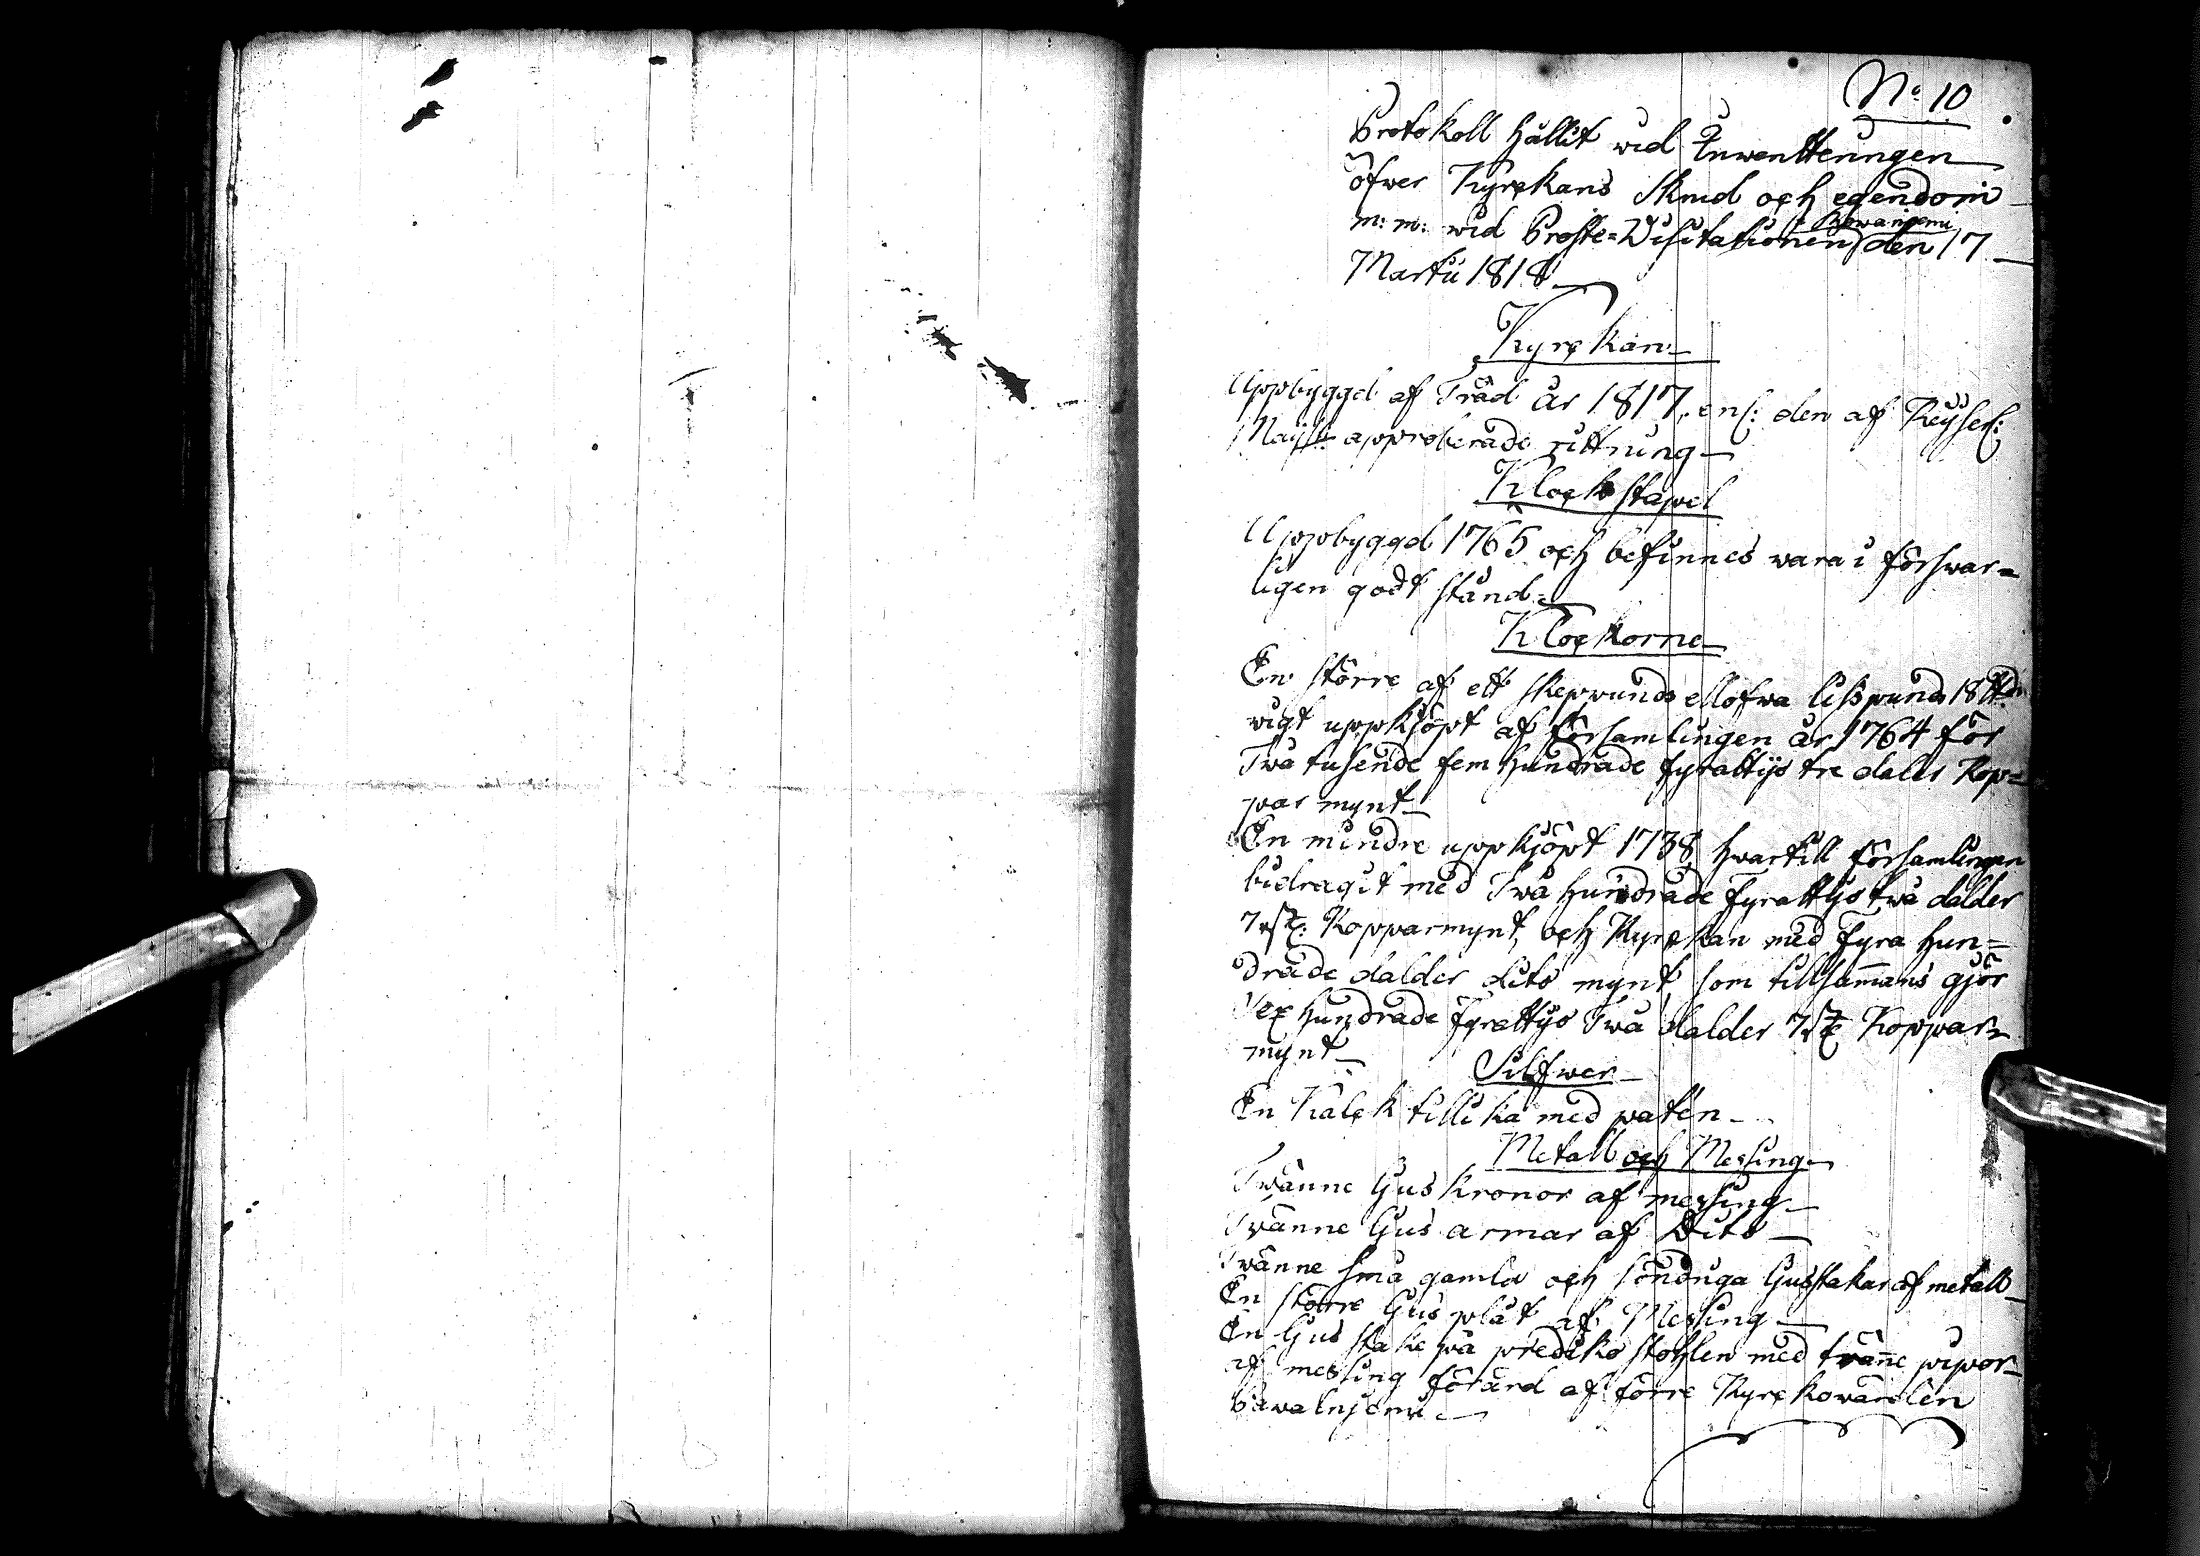 No 10
Protokoll hållit wid Inwentteringen
öfwer Kyrckans Skrud och egendom
m: m: wid Proste=Visitationen i Rowaniemi den 17
Martii 1818
Kyrckan
Uppbyggd af Träd år 1817, enl: den af Keyserl:
Maij:tt approberade rittning
Klockstapel
Uppbyggd 1765 och befinnes wara i förswar=
ligen godt stånd.
Klockorne
En större af ett skeppunds ellofwa lispunds 18 ℔ds
wigt uppkjöpt af församlingen år 1764 för
Twå tusende fem hundrade fyrattijo tre daler Kop=
par mynt
En mindre uppkjöpt 1738, hwartill församlingen
bidragit med Twå hundrade fyrattijo twå dalder
7 Kopparmynt, och Kyrckan med Fyra hun=
drade dalder dito mynt, som tillsammans gjör
Sex hundrade Fyrattijo Twå dalder 7 Koppar=
mynt
Silfwer
En Kalck tillika med patèn
Metall och Messing
Twänne ljus kronor af messing
Twänne ljus armar af Dito
Twänne små gamla och sönduga ljusstakar af metall
En större ljus plåt af Messing
En ljus stake på prediko stohlen med twänne pipor
af messing förärd af förre Kyrckowärden